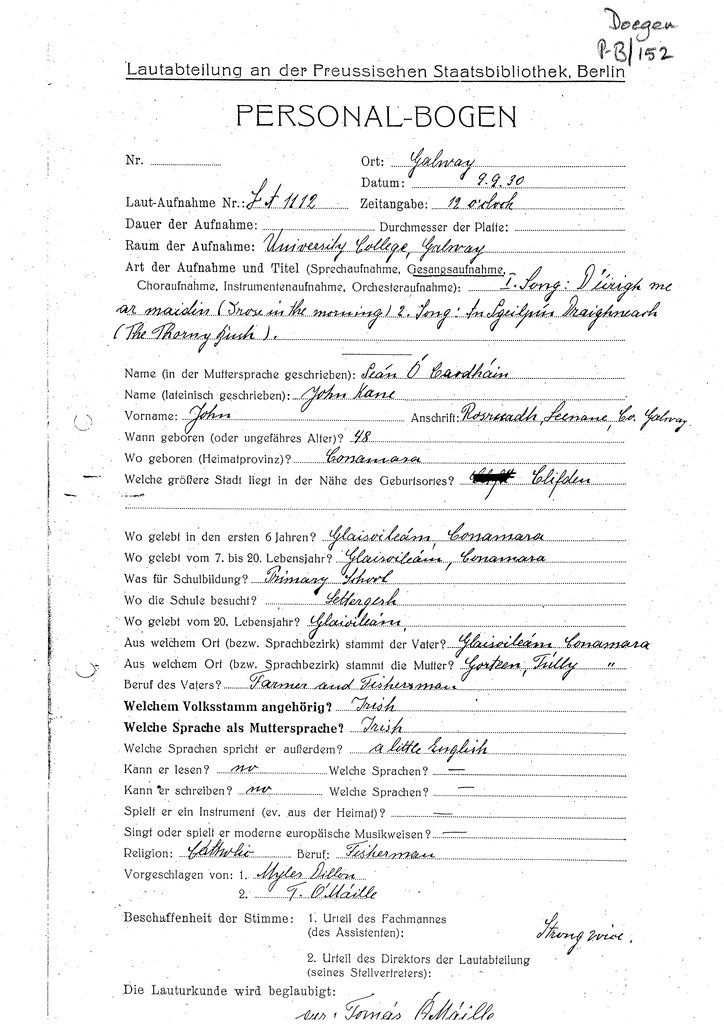 Doegen
P-B/152
Lautabteilung an der Preussischen Staatsbibliothek, Berlin
PERSONAL-BOGEN
Nr.
Ort: Galway
Datum: 9.9.30
Laut-Aufnahme Nr.: LA 1112 Zeitangabe: 12 o'clock
Dauer der Aufnahme: Durchmesser der Platte:
Raum der Aufnahme: University College, Galway
Art der Aufnahme und Titel (Sprechaufnahme, Gesangsaufnahme,
Choraufnahme, Instrumentenaufnahme, Orchesteraufnahme): I. Song: D'éirigh me
ar maidin (I rose in the morning) 2. Song: An Sgeilpín Draighneach
(The Thorny Bush).
Name (in der Muttersprache geschrieben): Seán Ó Caodháin
Name (lateinisch geschrieben): John Kane
Vorname: John Anschrift: Rosruadh, Leenane, Co. Galway.
Wann geboren (oder ungefähres Alter)? 48
Wo geboren (Heimatprovinz)? Conamara
Welche größere Stadt liegt in der Nähe des Geburtsortes? Clifden
Wo gelebt in den ersten 6 Jahren? Glaisoileám, Conamara
Wo gelebt vom 7. bis 20. Lebensjahr? Glaisoileám, Conamara
Was für Schulbildung? Primary School
Wo die Schule besucht? Lettergesh
Wo gelebt vom 20. Lebensjahr? Glaisoileám,
Aus welchem Ort (bezw. Sprachbezirk) stammt der Vater? Glaisoileám Conamara
Aus welchem Ort (bzw. Sprachbezirk) stammt die Mutter? Tully "
Beruf des Vaters? Farmer and Fisherman
Welchem Volksstamm angehörig? Irish
Welche Sprache als Muttersprache? Irish
Welche Sprachen spricht er außerdem? a little English
Kann er lesen? no Welche Sprachen? —
Kann er schreiben? no Welche Sprachen? —
Spielt er ein Instrument (ev. aus der Heimat)? —
Singt oder spielt er moderne europäische Musikweisen? —
Religion: Catholic Beruf: Fisherman
Vorgeschlagen von: 1. Myles Dillon
2. T. Ó Máille
Beschaffenheit der Stimme: 1. Urteil des Fachmannes
(des Assistenten): Strong voice.
2. Urteil des Direktors der Lautabteilung
(seines Stellvertreters):
Die Lauturkunde wird beglaubigt:
Tomás Ó Máille